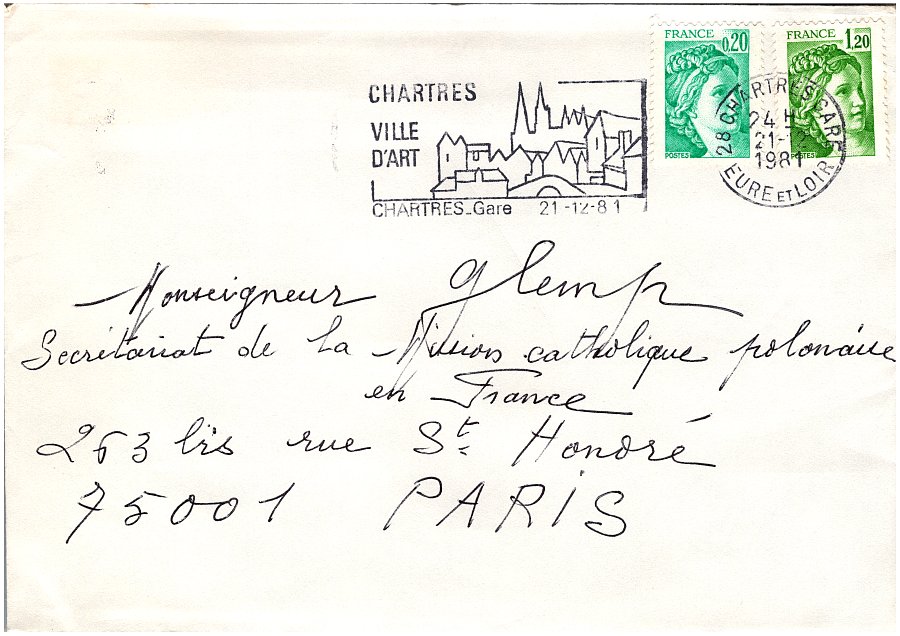 FRANCE 0,20
POSTES
FRANCE 1,20
POSTES
CHARTRES
VILLE
D'ART
CHARTRES-Gare 21-12-81
28 CHARTRES GARE
24 H
21-12
1981
EURE ET LOIR
Monseigneur Glemp
Secrétariat de la Mission catholique polonaise
en France
263 bis rue St Honoré
75001 PARIS